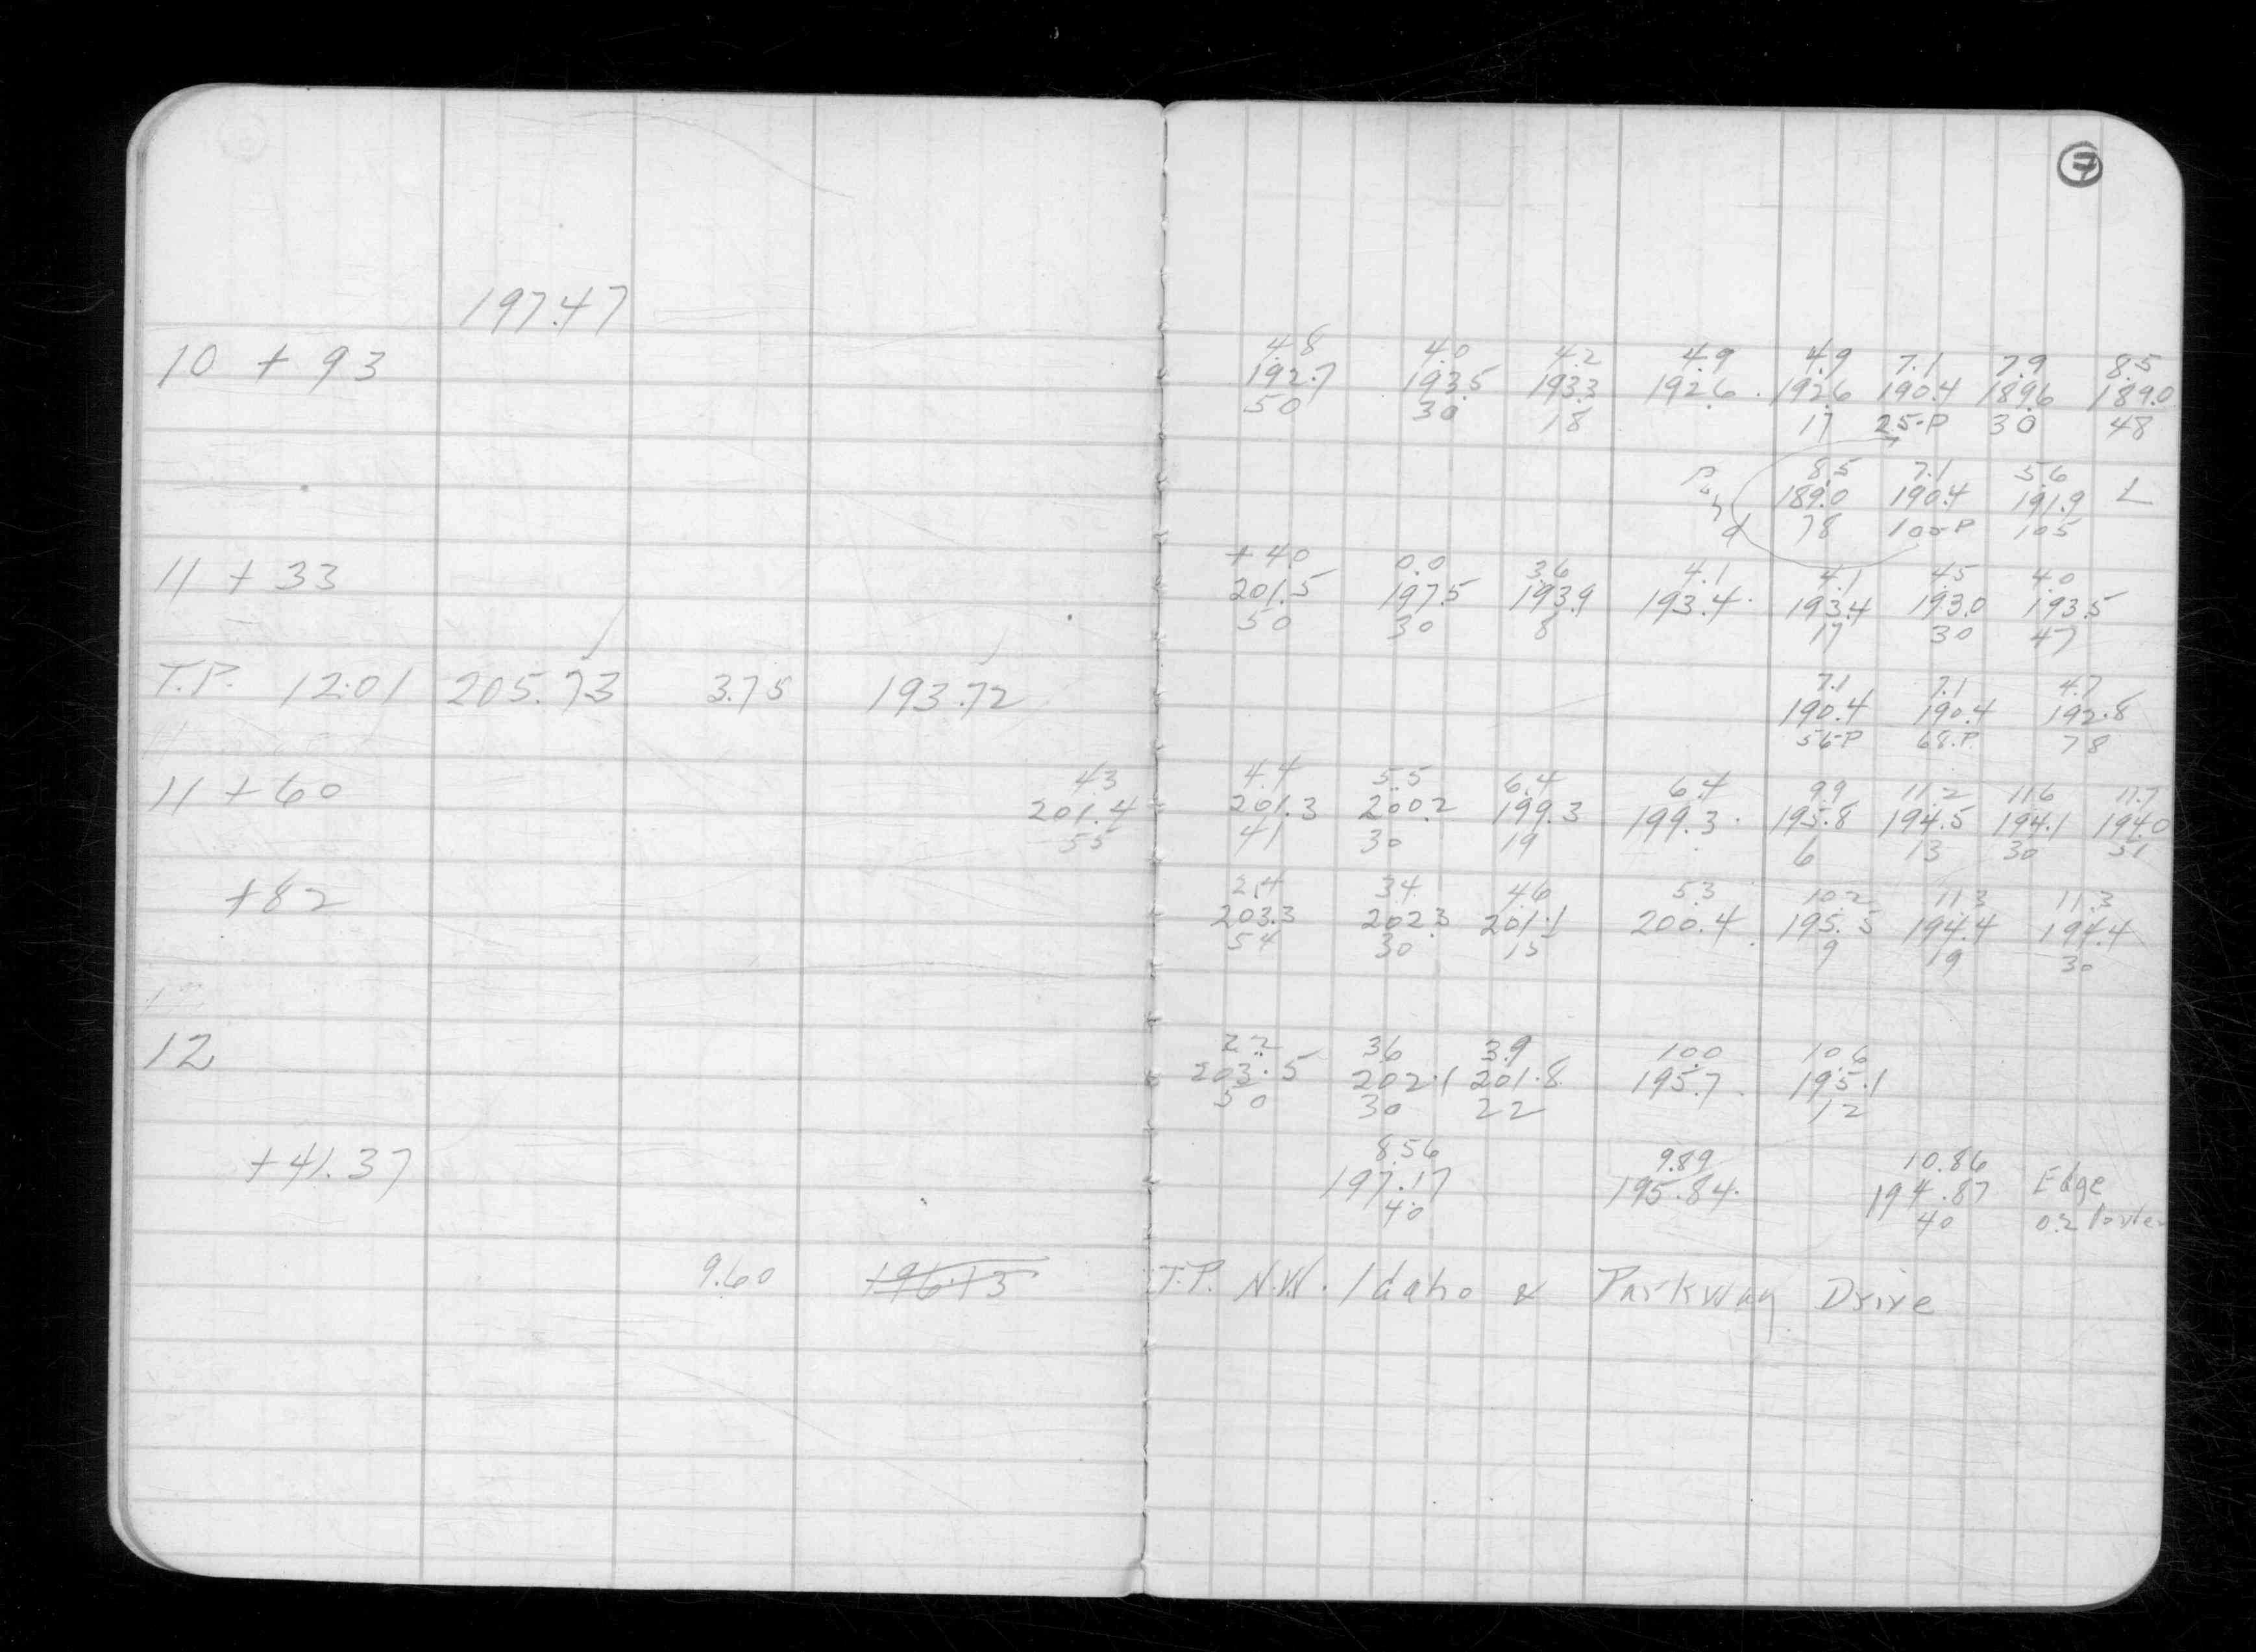 7
197.47
4.8 4.0 4.2 4.9 4.9 7.1 7.9 8.5
10 + 93 192.7 193.5 193.3 192.6 192.6 190.4 189.6 189.0
50 30 18 17 25-P 30 48
8.5 7.1 5.6
189.0 190.4 191.9 L
78 100-P 105
+4.0 0.0 3.6 4.1 4.1 4.5 4.0
11 + 33 201.5 197.5 193.9 193.4 193.4 193.0 193.5
50 30 8 17 30 47
7.1 7.1 4.7
T.P. 12.01 205.73 3.75 193.72 190.4 190.4 192.8
56-P 68-P 78
4.3 4.4 5.5 6.4 6.4 9.9 11.2 11.6 11.7
11 + 60 201.4 201.3 200.2 199.3 199.3 195.8 194.5 194.1 194.0
55 41 30 19 6 13 30 51
2.4 3.4 4.6 5.3 10.2 11.3 11.3
+82 203.3 202.3 201.1 200.4 195.5 194.4 194.4
54 30 15 9 19 30
2.2 3.6 3.9 10.0 10.6
12 203.5 202.1 201.8 195.7 195.1
50 30 22 12
8.56 9.89 10.86
+41.37 197.17 195.84 194.87 Edge
40 40 0.2
9.60 196.13 T.P. N.W. Idaho & Parkway Drive